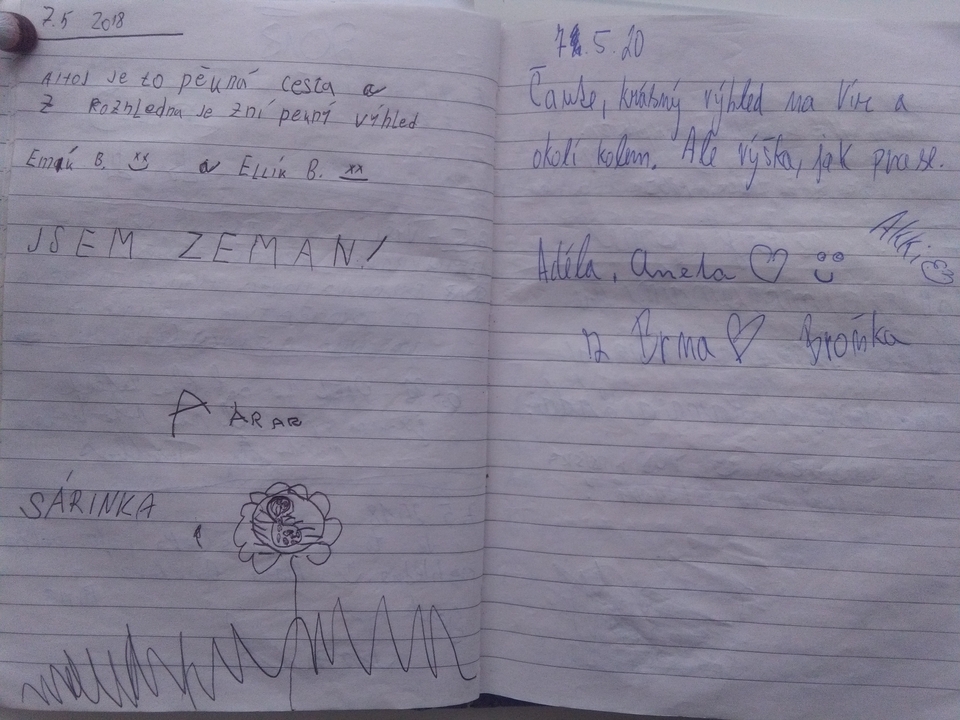 7.5 2018
je to pěkná cesta a
z Rozhledna je zní pěkný výhled
Emík B. xx a Elík B. xx
JSEM ZEMAN!
A ARAR
SÁRINKA
7.5.20
Čause, krásný výhled na Vír a
okolí kolem. Ale výška, jak prase.
Akki
Adéla, Aneta
z Brna Broňka